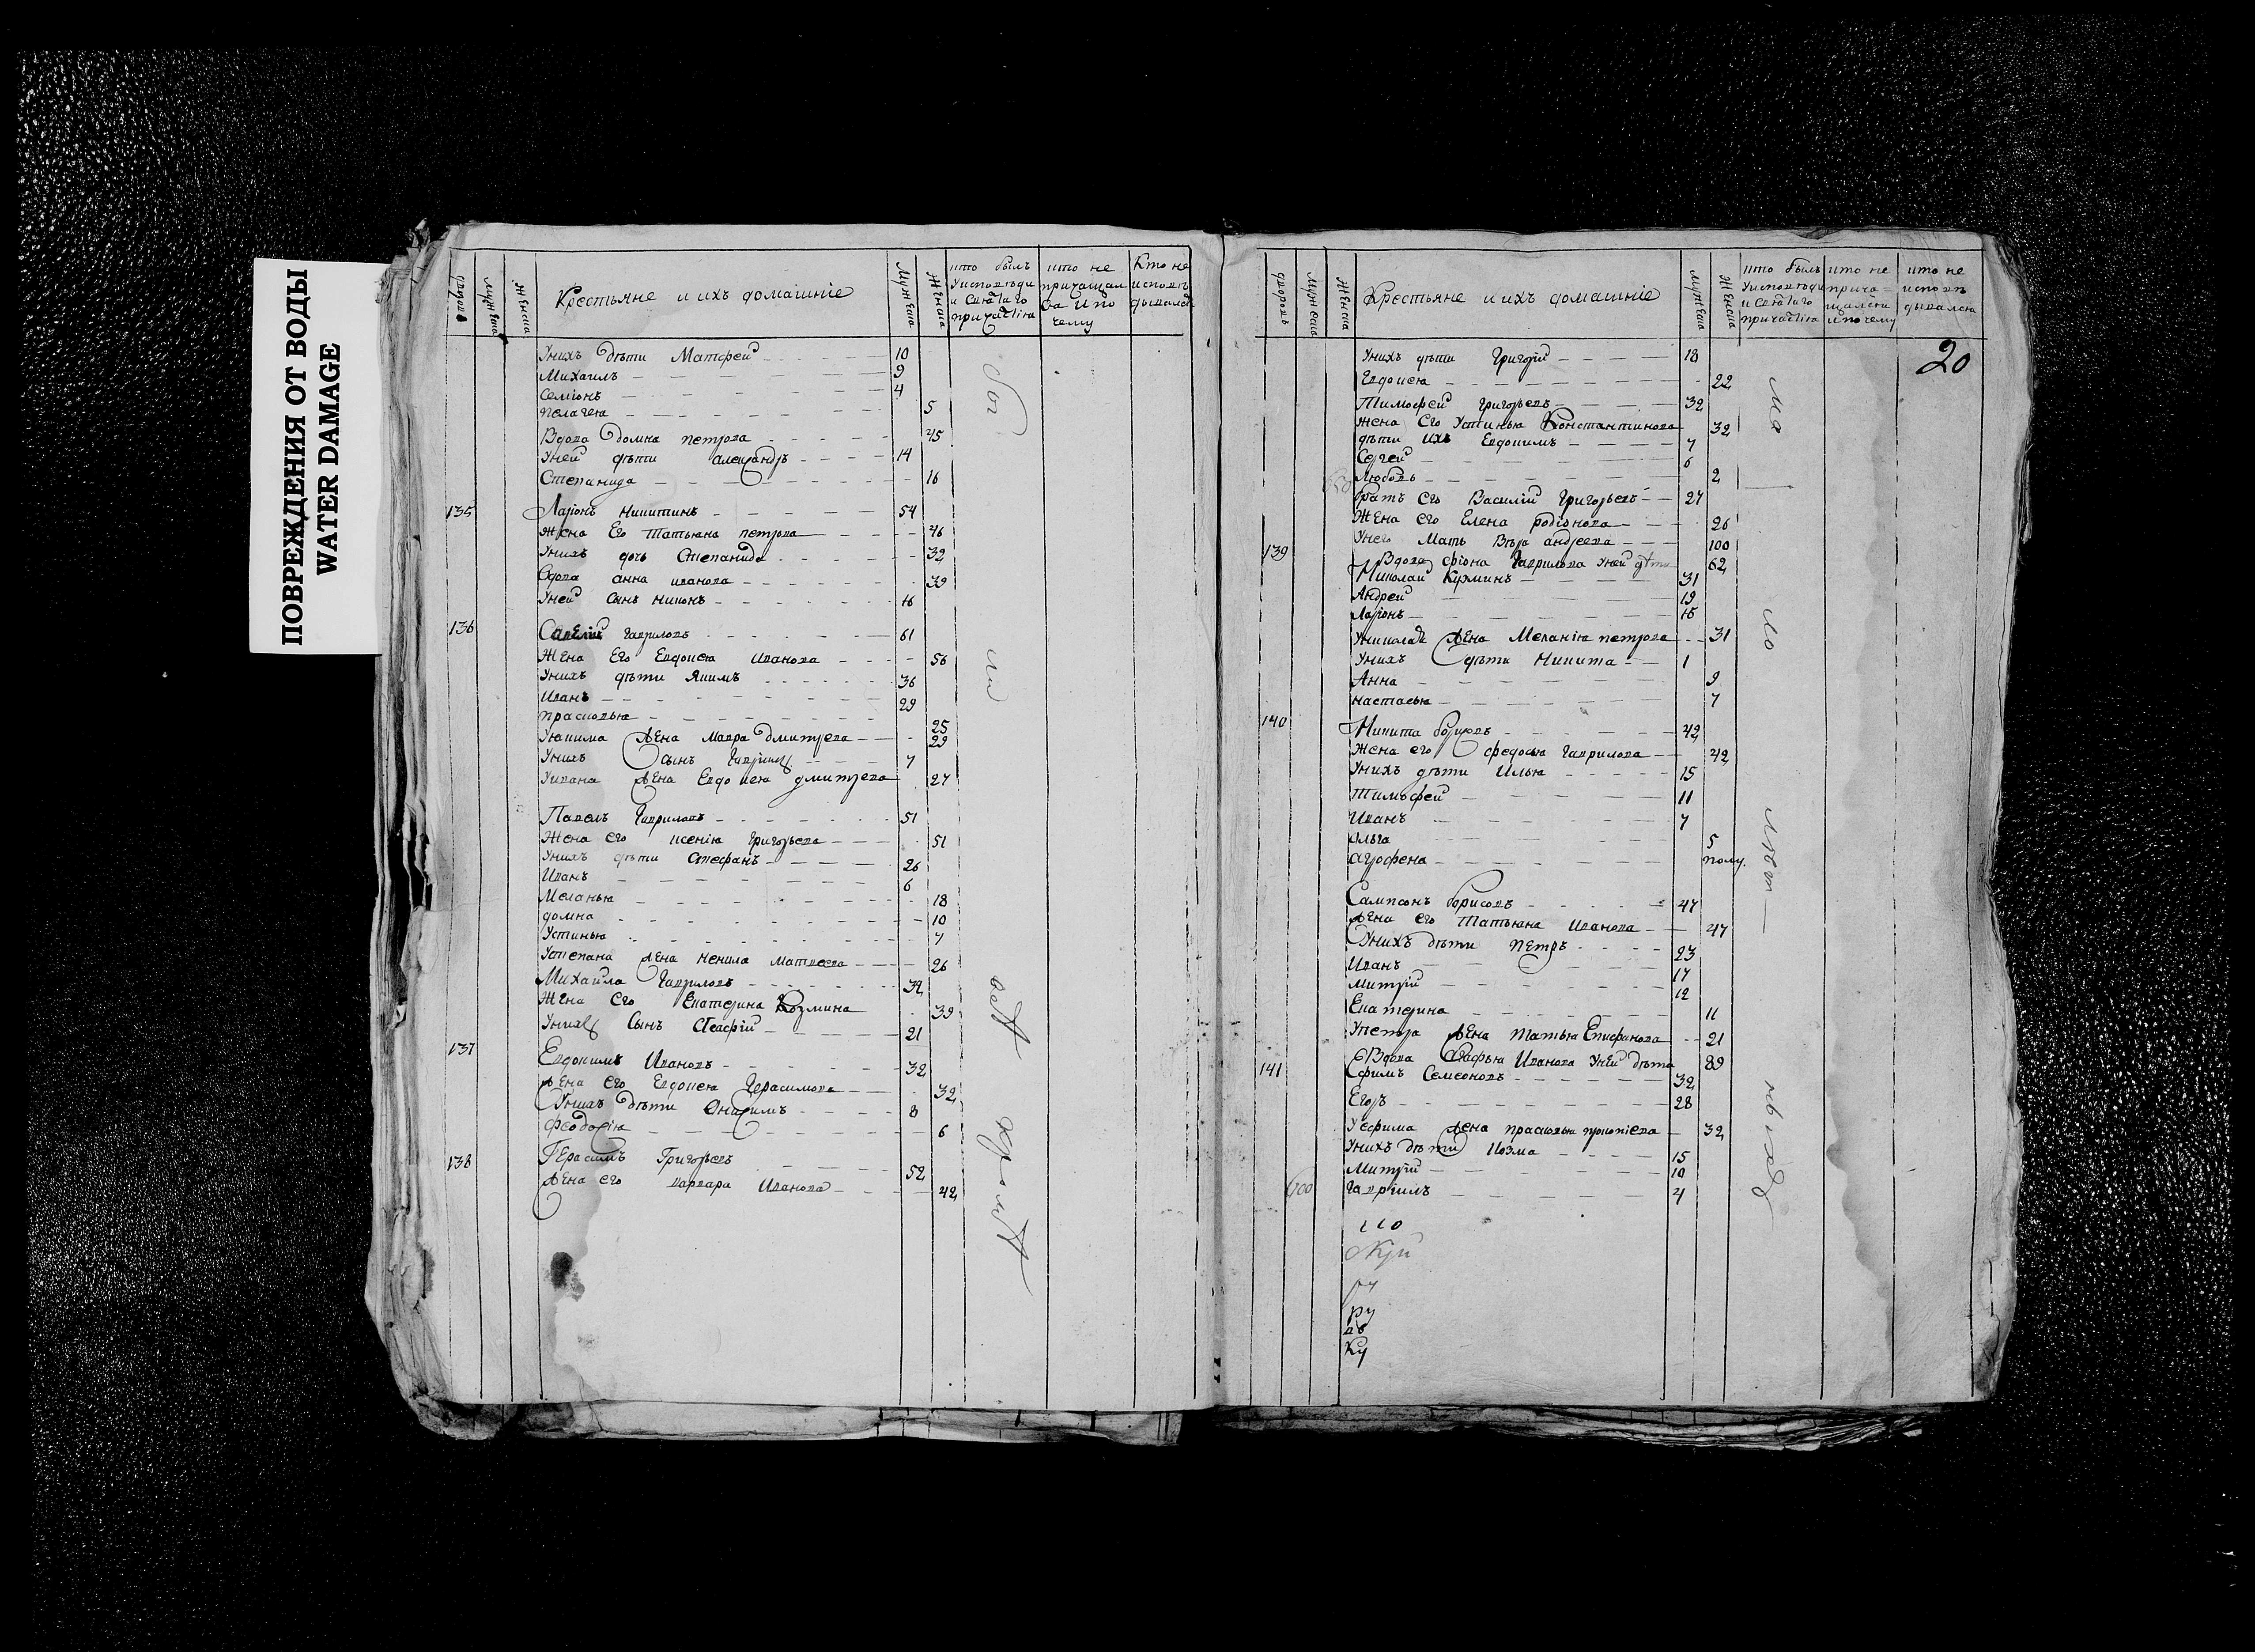 ПОВРЕЖДЕНИЯ ОТ ВОДЫ
WATER DAMAGE
дворовъ
мужеска
женска
Крестьяне и ихъ домашніе
Мужеска
женска
кто былъ у исповѣди и святаго причастія
кто не причащался и по чему
Кто не исповѣдывался
Унихъ дѣти Матфей 10
Михаилъ 9
Семіонъ 4
Пелагея 5
Вдова Домна петрова 45
Уней дѣти Александръ 14
Степанида 16
135 Ларіонъ Никитинъ 54
Жена Его Татьяна петрова 46
Унихъ дочь Степанида 32
Вдова анна иванова 39
Уней Сынъ Никонъ 16
136 Савелій Гавриловъ 61
Жена Его Евдокея Иванова 56
Унихъ дѣти Якимъ 36
Иванъ 29
Прасковья 25
Уякима жена Мавра Дмитрева 29
Унихъ Сынъ Гаврилъ 7
Уивана жена Евдокея дмитрева 27
Павелъ Гавриловъ 51
Жена его ксенія Григорьева 51
Унихъ дѣти Стефанъ 26
Иванъ 6
Меланья 18
домна 10
Устинья 7
Устепана жена Ненила Матвеева 26
Михайла Гавриловъ 32
Жена Его Екатерина Козмина 39
Унихъ Сынъ 21
137 Евдокимъ Ивановъ 32
жена Его Евдокея Герасимова 32
Унихъ дѣти Онисимъ 8
Феодосія 6
138 Герасимъ Григорьевъ 52
жена его варвара Иванова 42
всѣ
кромѣ
дворовъ
мужеска
женска
Крестьяне и ихъ домашніе
мужеска
женска
кто былъ у исповѣди и святаго причастія
кто не причащался и почему
кто не исповѣдывался
20
Унихъ дѣти Григорій 18
Евдокея 22
Тимофей Григорьевъ 32
жена Его Устинья Константинова 32
дѣти ихъ Евдокимъ 7
Сергей 6
Любовь 2
братъ его Василій Григорьевъ 27
Жена его Елена родіонова 26
Унего Мать Вѣра андреева 100
139 Вдова фіона Гаврилова Уней дѣти 62
Николай Кузминъ 31
Андрей 19
Ларіонъ 16
Униколая жена Меланія петрова 31
Унихъ дѣти Никита 1
Анна 9
настасья 7
140 Никита борисовъ 42
Жена его федосья Гаврилова 42
Унихъ дѣти Илья 15
Тимофей 11
Иванъ 7
Ольга 5
агрофена полу.
Сампсонъ борисовъ 47
жена его Татьяна Иванова 47
Унихъ дѣти петръ 23
Иванъ 17
Митрій 12
Екатерина 11
Упетра жена татьяна Епифанова 21
141 Вдова Агафья Иванова Уней дѣти 89
Ефимъ Семеоновъ 32
Егоръ 28
Уефима жена прасковья прокопіева 32
Унихъ дѣти Козма 15
Митрій 10
Гавріилъ 4
ма
ло
лѣт
ныхъ
ру
дв
Ку